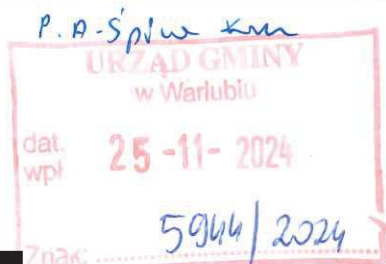 P. A-Śpiw
URZĄD GMINY
w Warlubiu
dat. wpł 25 -11- 2024
5944/2024
Znak: